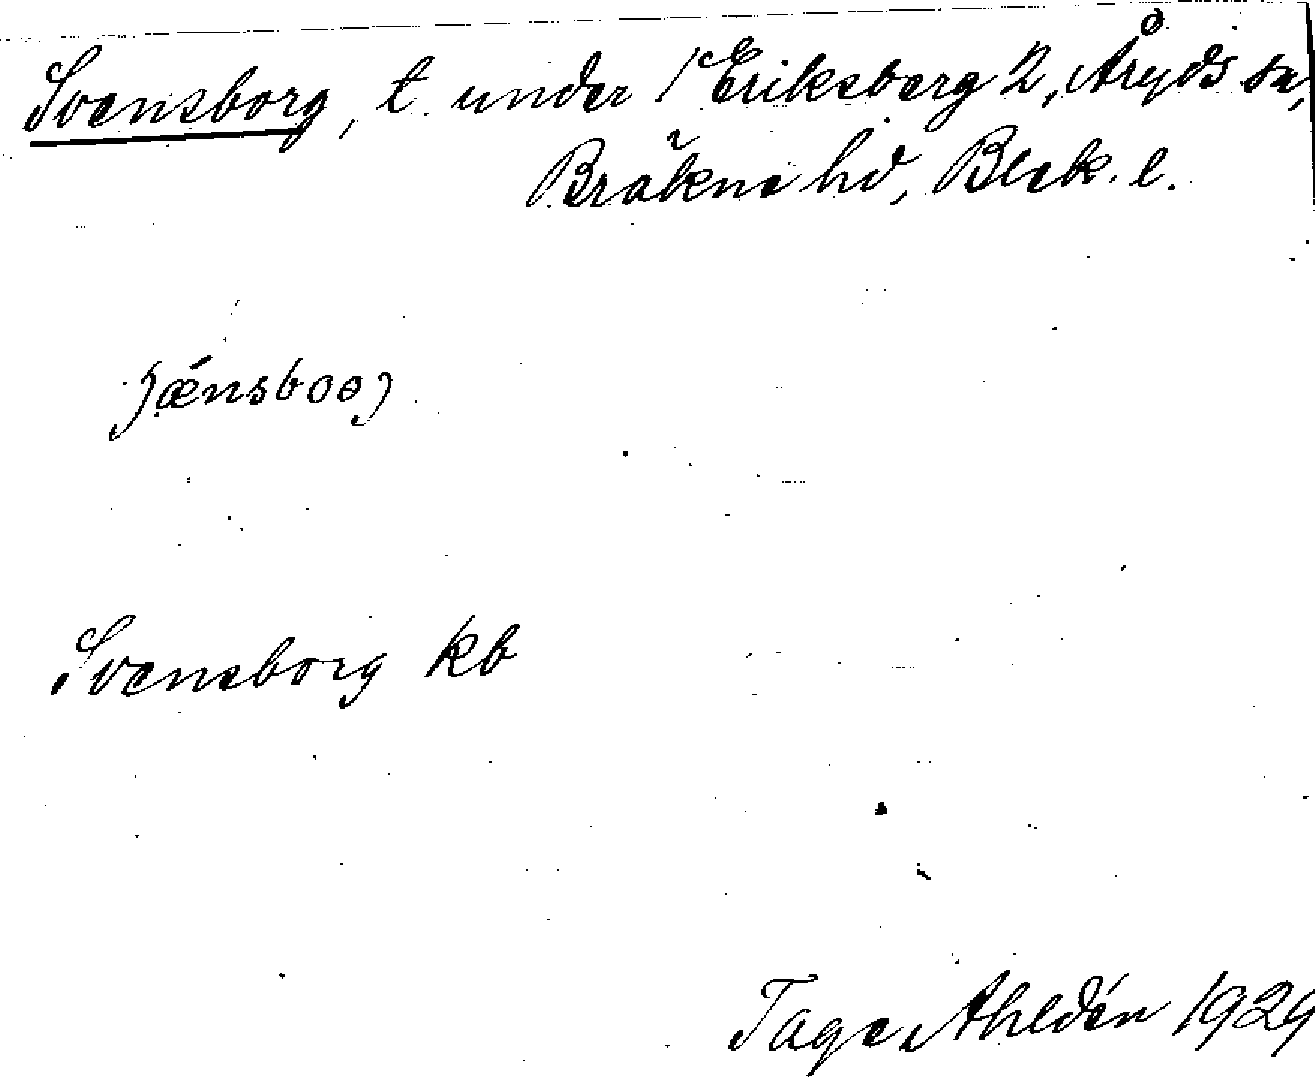 Svensborg, t. under 1 Eriksberg 2, Åryds sn,
Bräkne hd, Blek. l.
Svensborg kb
Tage Ahldén 1929